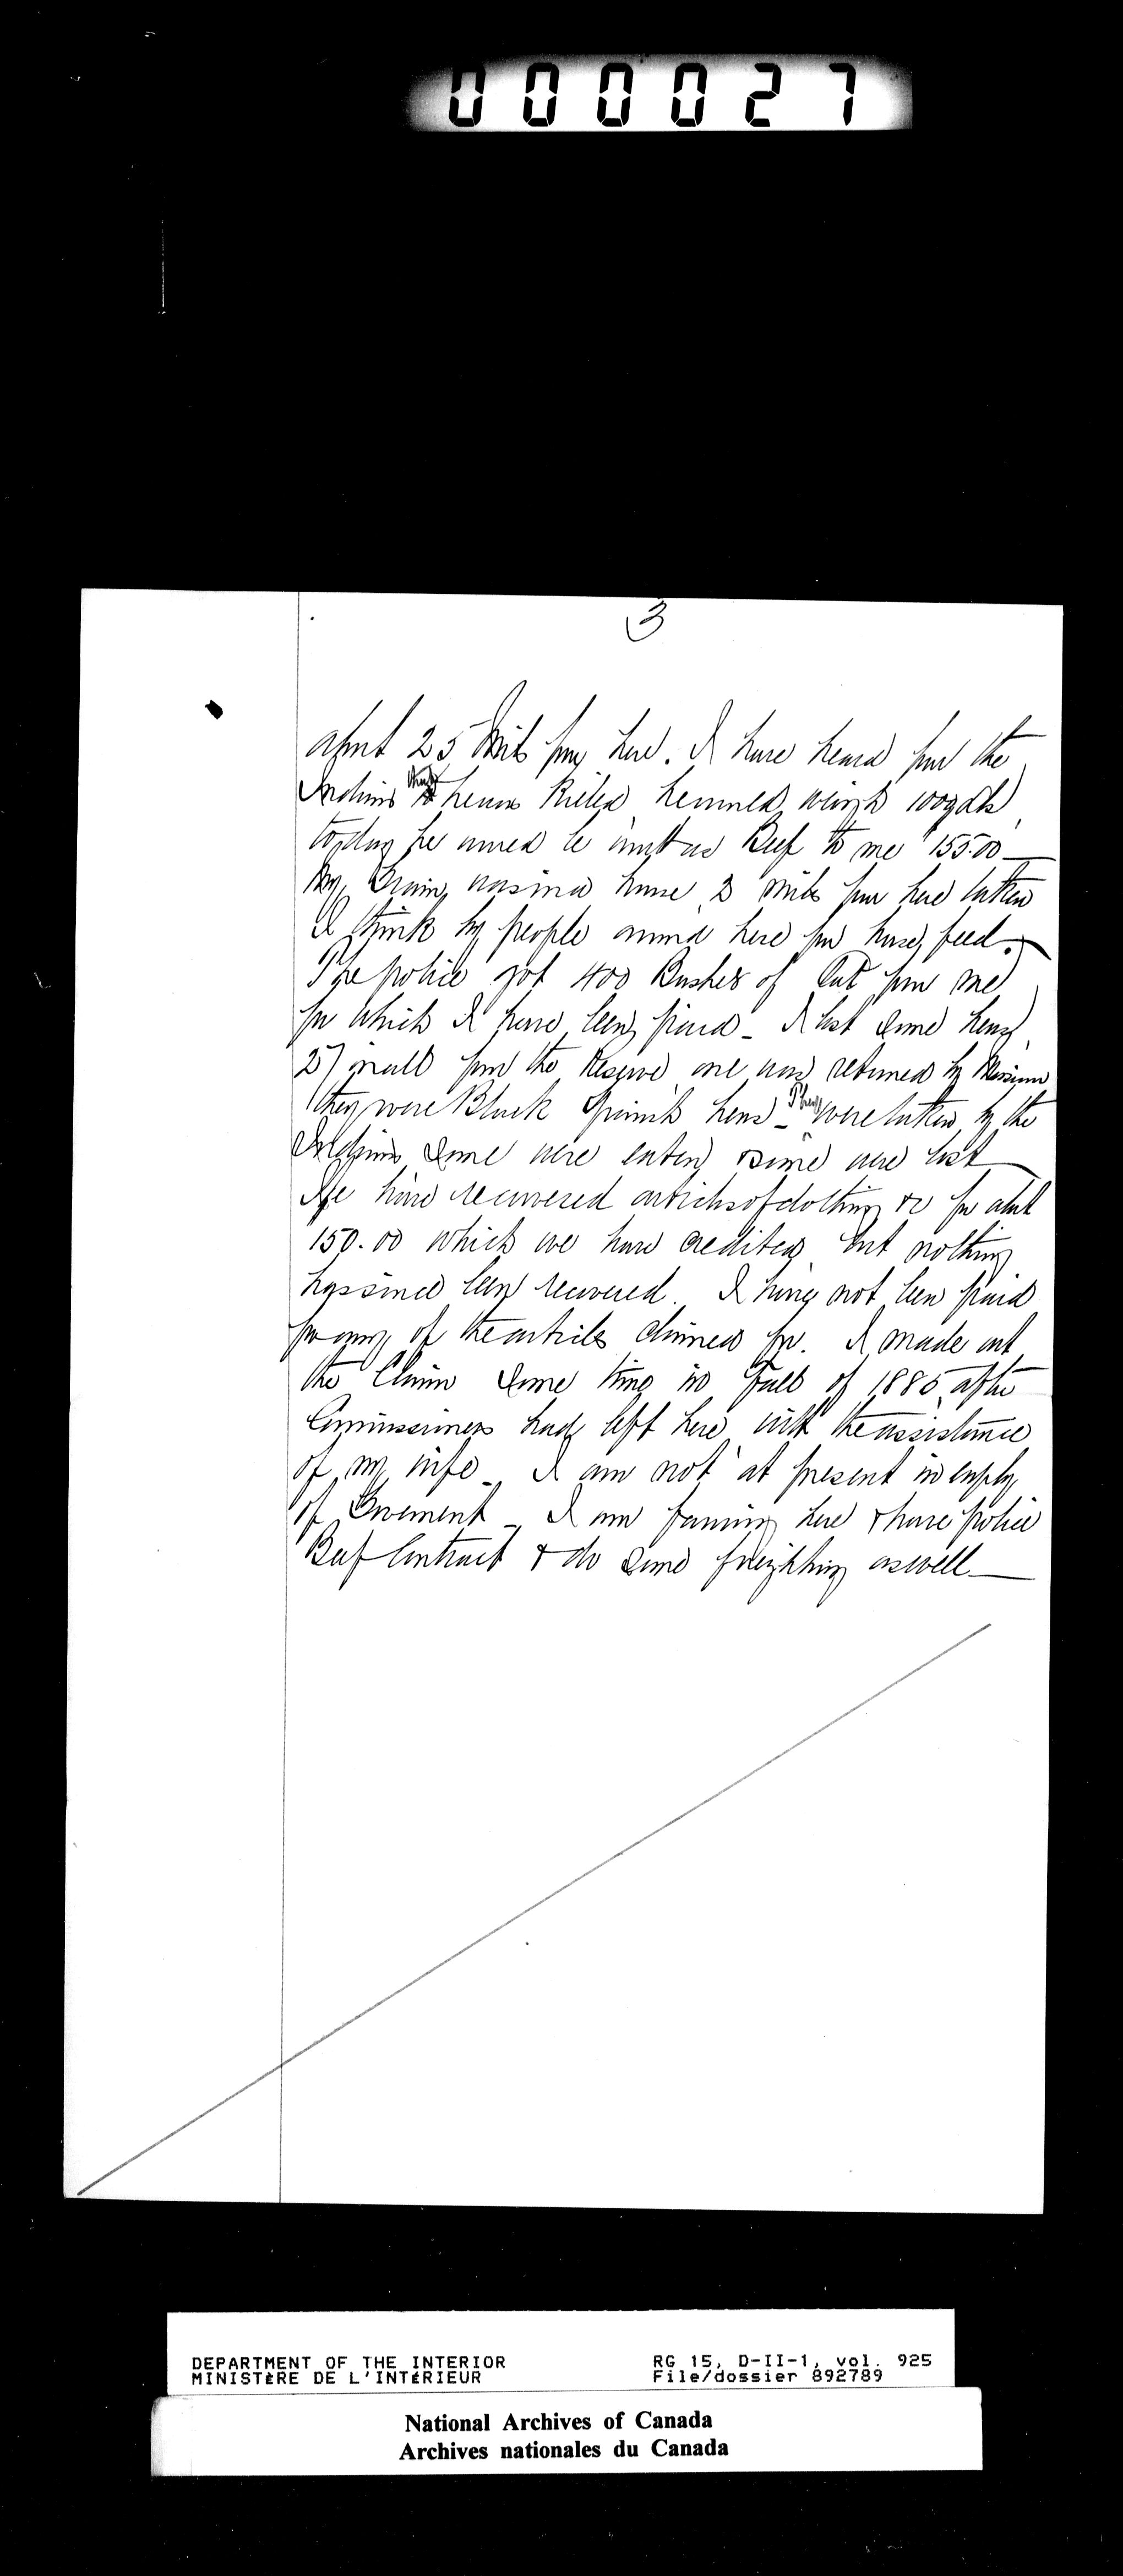 000027
3
about 25 Miles from here. I have heard from the
Indians they killed weigh
to day he would be as Beef to me 155.00 —
My Grain was in a house 2 miles from here taken
I think by people around here for horse feed. —
The police got 400 Bushels of Oat from me
for which I have been paid _ I lost some hens
27 in all from the Reserve one was returned by
they were Black Spanish hens _ They were taken by the
Indians some were eaten & some were lost —
We have recovered articles of clothing &c for about
150.00 which we have credited but nothing
has since been recovered. I have not been paid
for any of the articles claimed for. I made out
the Claim some time in Fall of 1885 after
Commissioners had left here with the assistance
of my wife _ I am not at present in employ
of Government _ I am farming here & have police
Beef Contract & do some freighting as well —
DEPARTMENT OF THE INTERIOR
MINISTÈRE DE L'INTÉRIEUR
RG 15, D-II-1, vol. 925
File/dossier 892789
National Archives of Canada
Archives nationales du Canada